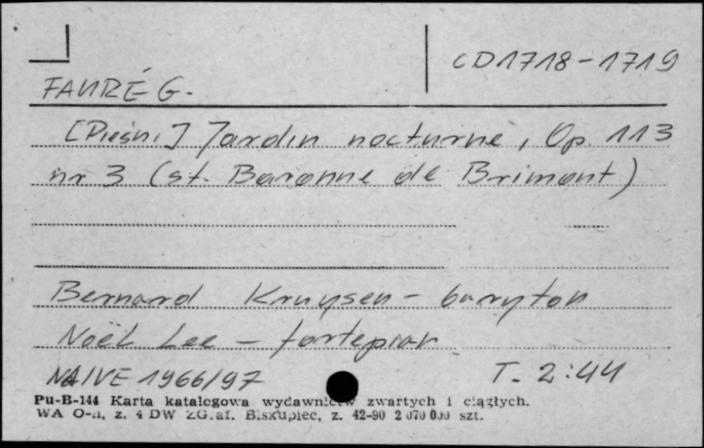 CD1718-1719
FAURÉ G.
[Pieśni] Jardin nocturne, Op. 113
nr 3 (sł. Baronne de Brimont)
Bernard Kruysen - baryton
Noël Lee - fortepian
NAIVE 1966/97 T. 2:44
Pu-B-144 Karta katalogowa wydawnictw zwartych i ciągłych.
WA O-n, z. 4 DW ZG.af. Biskupiec, z. 42-90 2 070 000 szt.